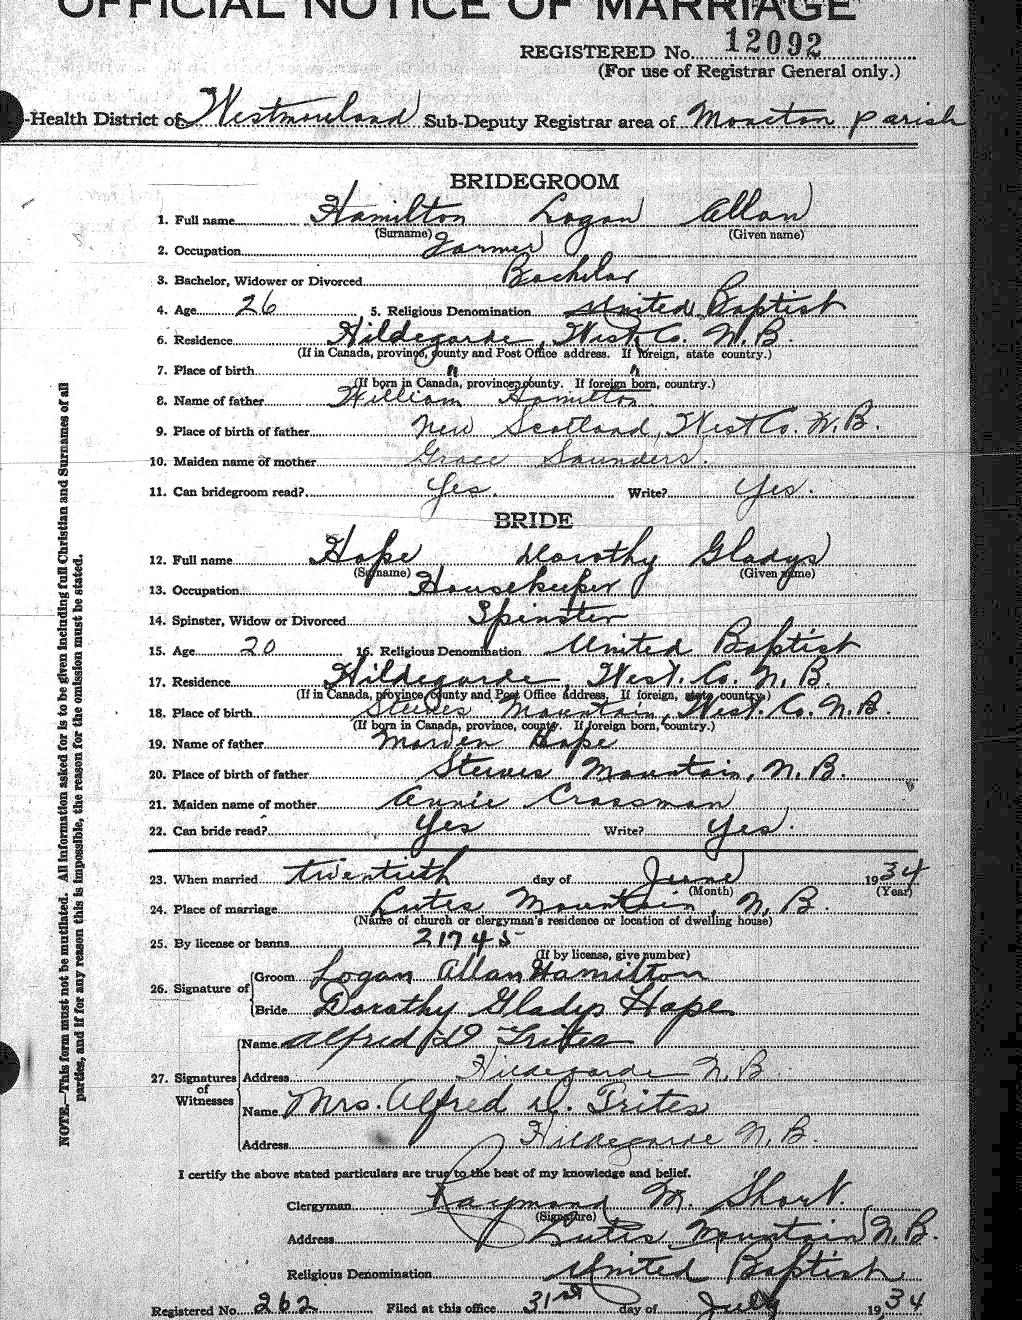 OFFICIAL NOTICE OF MARRIAGE
REGISTERED No. 12092
(For use of Registrar General only.)
-Health District of Westmorland Sub-Deputy Registrar area of Moncton Parish
BRIDEGROOM
1. Full name Hamilton Logan Allan
(Surname) (Given name)
2. Occupation Farmer
3. Bachelor, Widower or Divorced Bachelor
4. Age 26 5. Religious Denomination United Baptist
6. Residence Hildegarde, West. Co. N.B.
(If in Canada, province, county and Post Office address. If foreign, state country.)
7. Place of birth " "
(If born in Canada, province, county. If foreign born, country.)
8. Name of father William Hamilton
9. Place of birth of father New Scotland, West Co. N.B.
10. Maiden name of mother Grace Saunders.
11. Can bridegroom read? Yes. Write? Yes.
BRIDE
12. Full name Hope Dorothy Gladys
(Surname) (Given name)
13. Occupation Housekeeper
14. Spinster, Widow or Divorced Spinster
15. Age 20 16. Religious Denomination United Baptist
17. Residence Hildegarde, West. Co. N.B.
(If in Canada, province, county and Post Office address. If foreign, state country.)
18. Place of birth Steeves Mountain, West. Co. N.B.
(If born in Canada, province, county. If foreign born, country.)
19. Name of father Marven Hope
20. Place of birth of father Steeves Mountain, N.B.
21. Maiden name of mother Annie Crossman
22. Can bride read? Yes Write? Yes.
23. When married twentieth day of June 1934
(Month) (Year)
24. Place of marriage Lutes Mountain N.B.
(Name of church or clergyman's residence or location of dwelling house)
25. By license or banns 21745
(If by license, give number)
26. Signature of Groom Logan Allan Hamilton
Bride Dorathy Gladys Hope
27. Signatures of Witnesses Name Alfred D Trites
Address Hildegarde N.B.
Name Mrs. Alfred D. Trites
Address Hildegarde N.B.
I certify the above stated particulars are true to the best of my knowledge and belief.
Clergyman Raymond M. Short.
(Signature)
Address Lutes Mountain N.B.
Religious Denomination United Baptist
Registered No. 262 Filed at this office 31st day of July 1934
NOTE.—This form must not be mutilated. All information asked for is to be given including full Christian and Surnames of all
parties, and if for any reason this is impossible, the reason for the omission must be stated.